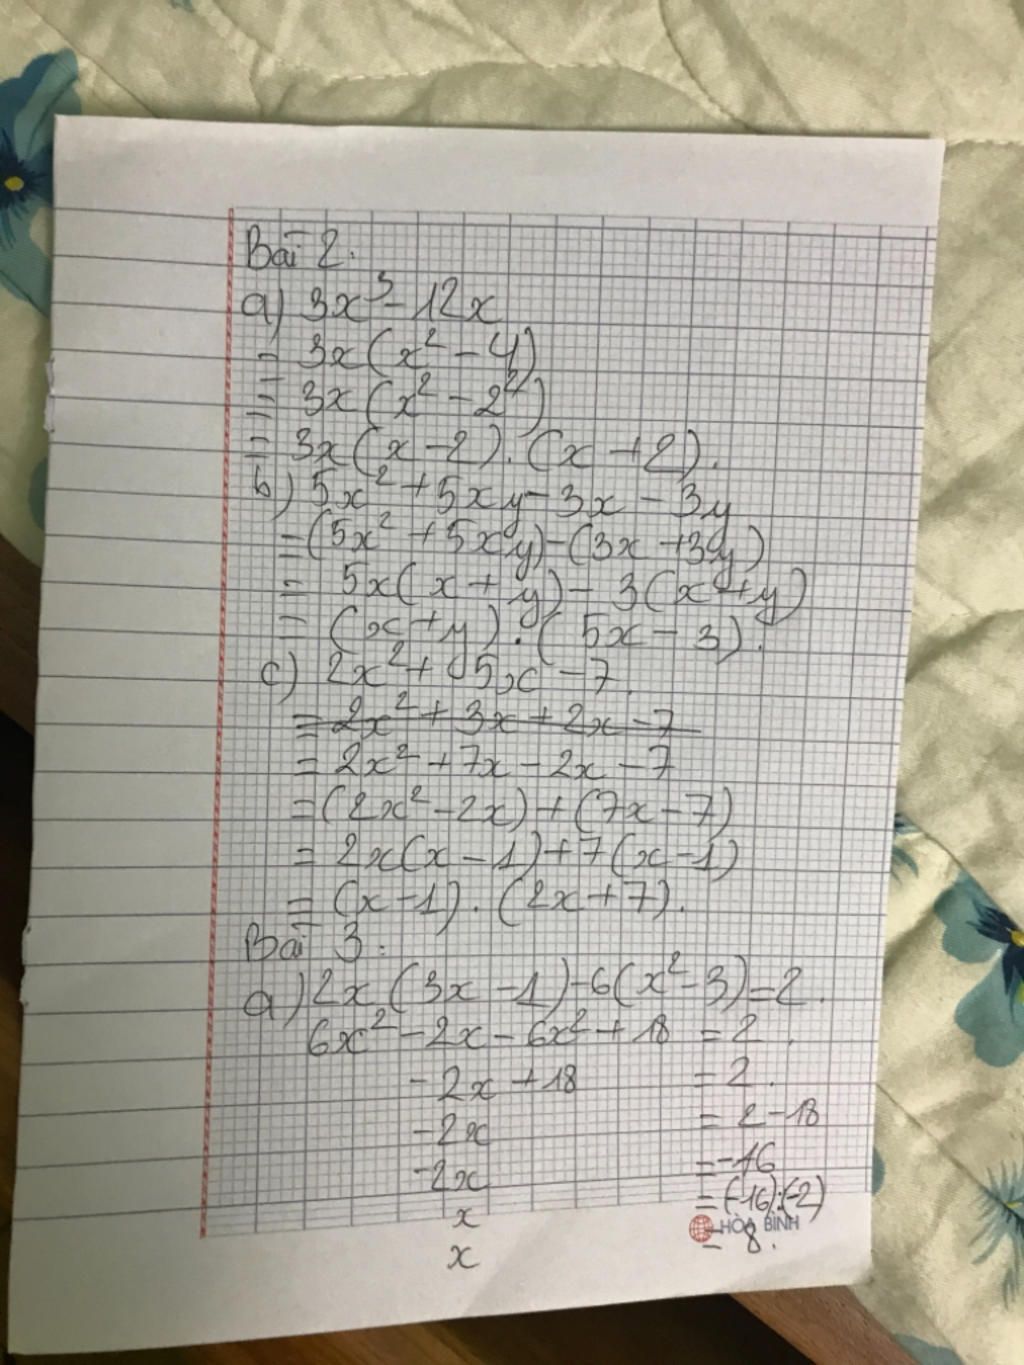 Bài 2:
a) 3x³ - 12x
= 3x(x² - 4)
= 3x(x² - 2²)
= 3x(x - 2).(x + 2).
b) 5x² + 5xy - 3x - 3y
= (5x² + 5xy) - (3x + 3y)
= 5x(x + y) - 3(x + y)
= (x + y).(5x - 3).
c) 2x² + 5x - 7.
= 2x² + 3x + 2x - 7
= 2x² + 7x - 2x - 7
= (2x² - 2x) + (7x - 7)
= 2x(x - 1) + 7(x - 1)
= (x - 1).(2x + 7).
Bài 3:
a) 2x(3x - 1) - 6(x² - 3) = 2.
6x² - 2x - 6x² + 18 = 2.
-2x + 18 = 2.
-2x = 2 - 18
-2x = -16
x = (-16):(-2)
x = 8.
HÒA BÌNH